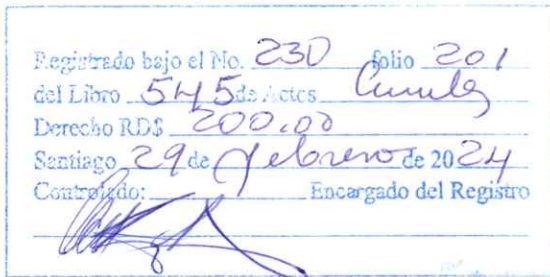 Registrado bajo el No. 230 folio 201
del Libro 545 de Actos Civiles
Derecho RD$ 200.00
Santiago 29 de febrero de 2024
Controlado: Encargado del Registro